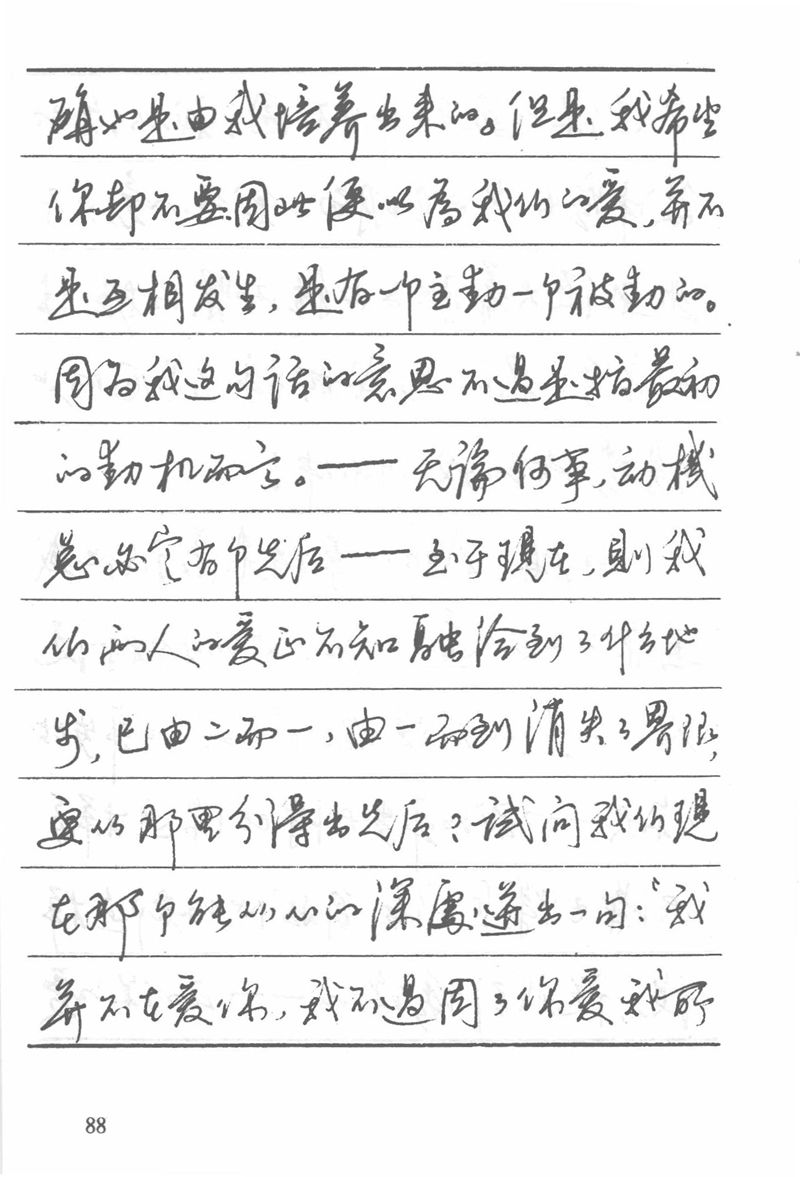 确如是由我培养出来的。但是我希望
你却不要因此便以為我们的爱，并不
是互相发生，是有一个主動一个被動的。
因为我这句话的意思不过是指最初
的動机而言。——无論何事，动機
总必定有个先后——至于現在，則我
们两人的爱正不知融洽到了什么地
步，已由二而一，由一而到消失了界限，
更从那里分得出先后？试问我们現
在那个能从心的深處迸出一句：「我
并不在爱你，我不过因了你爱我所
88